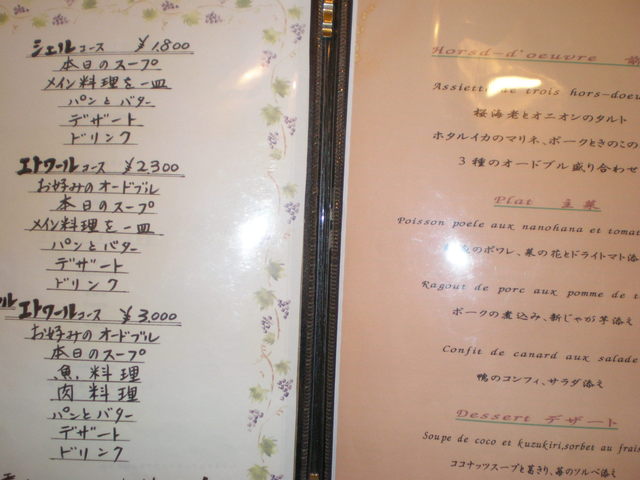 シェルコース ¥1.800
本日のスープ
メイン料理を一皿
パンとバター
デザート
ドリンク
エトワールコース ¥2.300
お好みのオードブル
本日のスープ
メイン料理を一皿
パンとバター
デザート
ドリンク
エトワールコース ¥3.000
お好みのオードブル
本日のスープ
魚料理
肉料理
パンとバター
デザート
ドリンク
Horsd-d'oeuvre
Assiette de trois hors-doeu
桜海老とオニオンのタルト
ホタルイカのマリネ、ポークときのこの
3種のオードブル盛り合わせ
Plat 主菜
Poisson poele aux nanohana et tomat
のポワレ、菜の花とドライトマト添
Ragout de porc aux pomme de t
ポークの煮込み、新じゃが芋添え
Confit de canard aux salade
鴨のコンフィ、サラダ添え
Dessert デザート
Soupe de coco et kuzukiri,sorbet au frais
ココナッツスープと葛きり、苺のソルベ添え